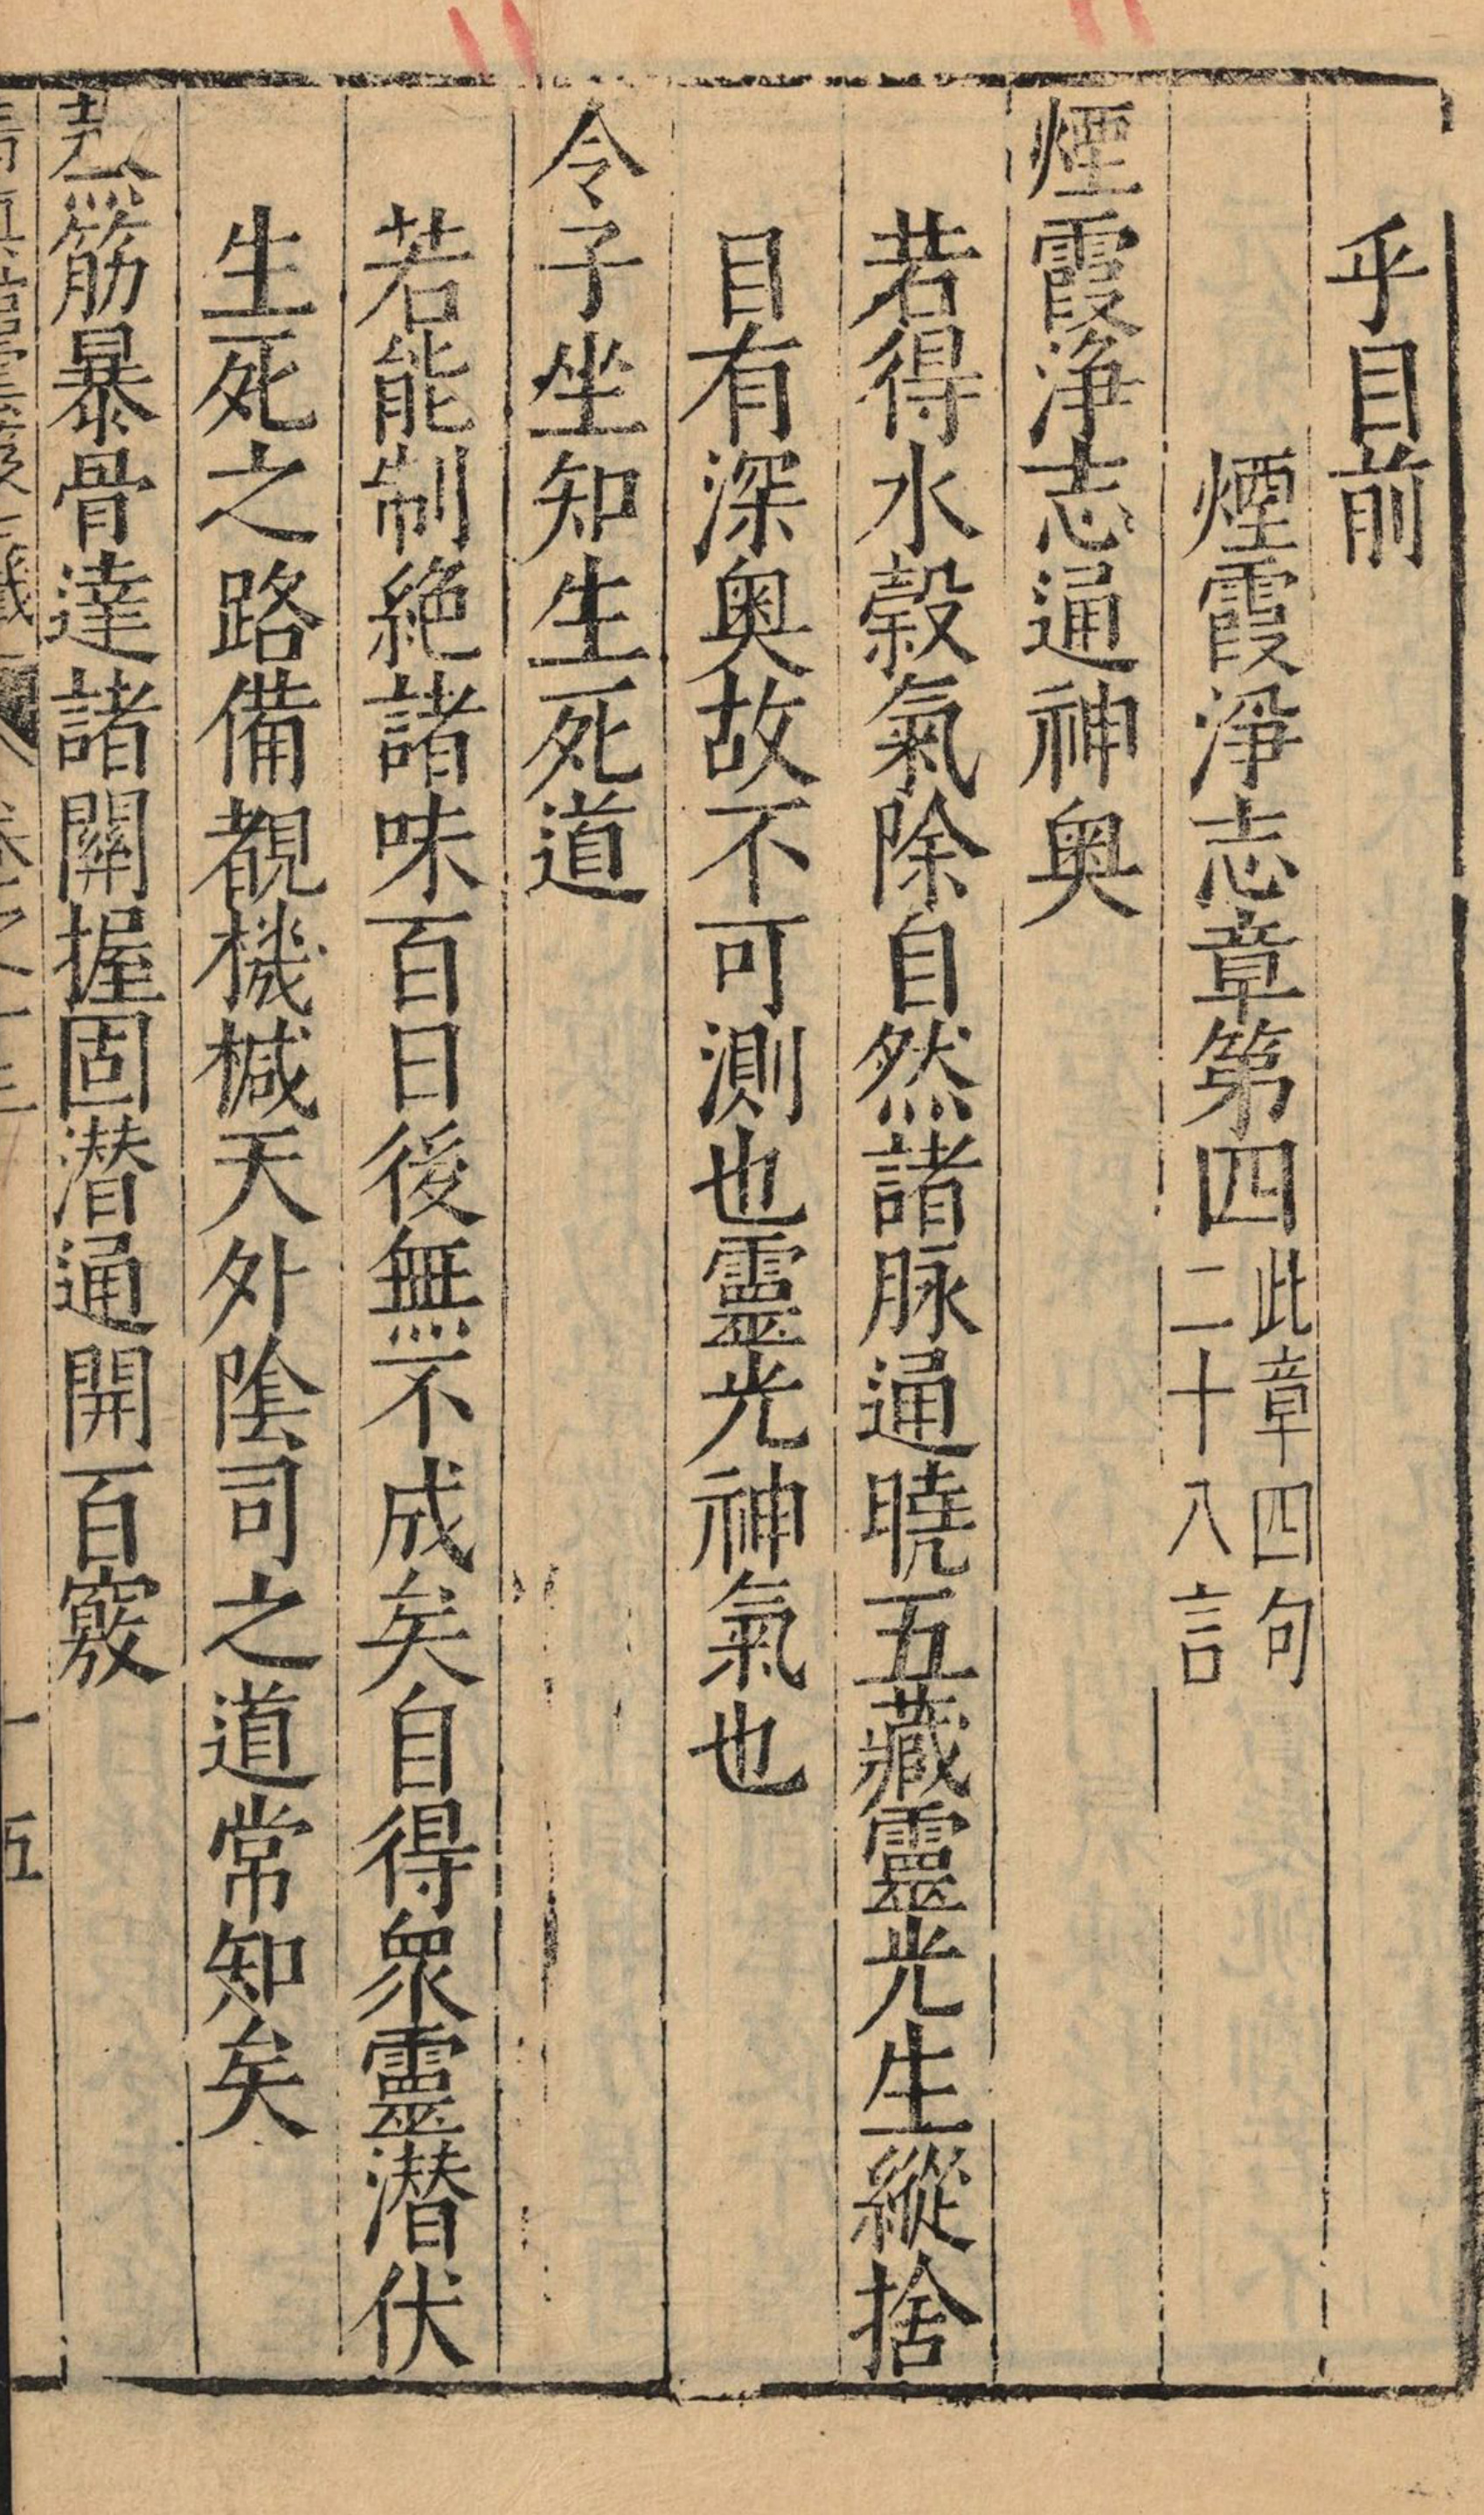 乎目前
煙霞淨志章第四此章四句二十八言
煙霞淨志通神奥
若得水穀氣除自然諸脉通曉五藏靈光生縱捨
目有深奥故不可測也靈光神氣也
令子坐知生死道
若能制絶諸味百日後無不成矣自得衆靈潜伏
生死之路備覩機椷天外陰司之道常知矣
筋暴骨達諸關握固潜通開百竅
卷之十三
十五